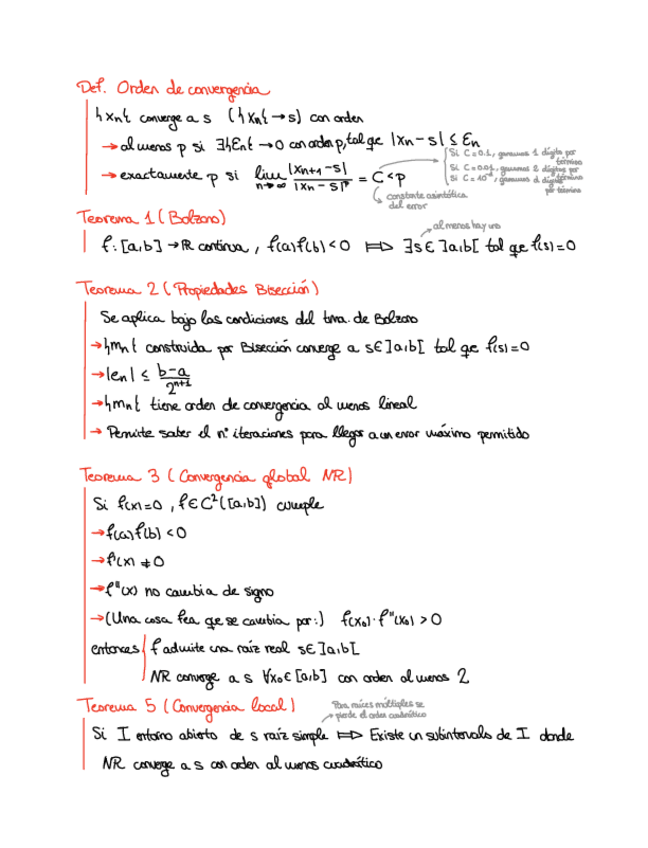 Def. Orden de convergencia
{xn} converge a s ({xn} → s) con orden
→ al menos p si ∃{εn} → 0 con orden p, tal qe |xn - s| ≤ εn
→ exactamente p si lim n→∞ |xn+1 - s| / |xn - s|^p = C < p
Si C = 0.1, ganamos 1 dígito por término
Si C = 0.01, ganamos 2 dígitos por término
Si C = 10^-d, ganamos d dígitos por término
constante asintótica del error
Teorema 1 (Bolzano)
al menos hay uno
f: [a,b] → ℝ continua, f(a)f(b) < 0 ⟹ ∃s ∈ ]a,b[ tal qe f(s) = 0
Teorema 2 (Propiedades Bisección)
Se aplica bajo las condiciones del tma. de Bolzano
→ {mn} construida por Bisección converge a s ∈ ]a,b[ tal qe f(s) = 0
→ |en| ≤ (b-a)/2^(n+1)
→ {mn} tiene orden de convergencia al menos lineal
→ Permite saber el nº iteraciones para llegar a un error máximo permitido
Teorema 3 (Convergencia global NR)
Si f(x) = 0, f ∈ C²([a,b]) cumple
→ f(a)f(b) < 0
→ f'(x) ≠ 0
→ f''(x) no cambia de signo
→ (Una cosa fea qe se cambia por:) f(x₀)·f''(x₀) > 0
entonces f admite una raíz real s ∈ ]a,b[
NR converge a s ∀x₀ ∈ [a,b] con orden al menos 2
Teorema 5 (Convergencia local)
Para raíces múltiples se
pierde el orden cuadrático
Si I entorno abierto de s raíz simple ⟹ Existe un subintervalo de I donde
NR converge a s con orden al menos cuadrático